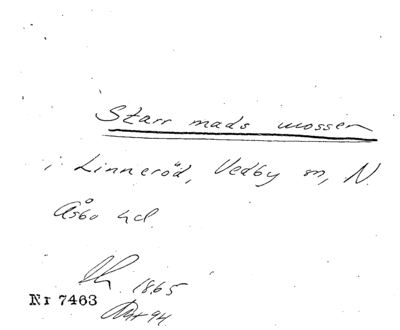 Starr mads mossen
i Linneröd, Vedby sn, N.
Åsbo hd.
1865
Nr 7463